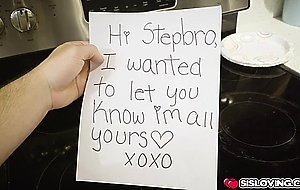 Hi Stepbro,
I wanted
to let you
know i'm all
yours♡
xoxo
SISLOVING.COM